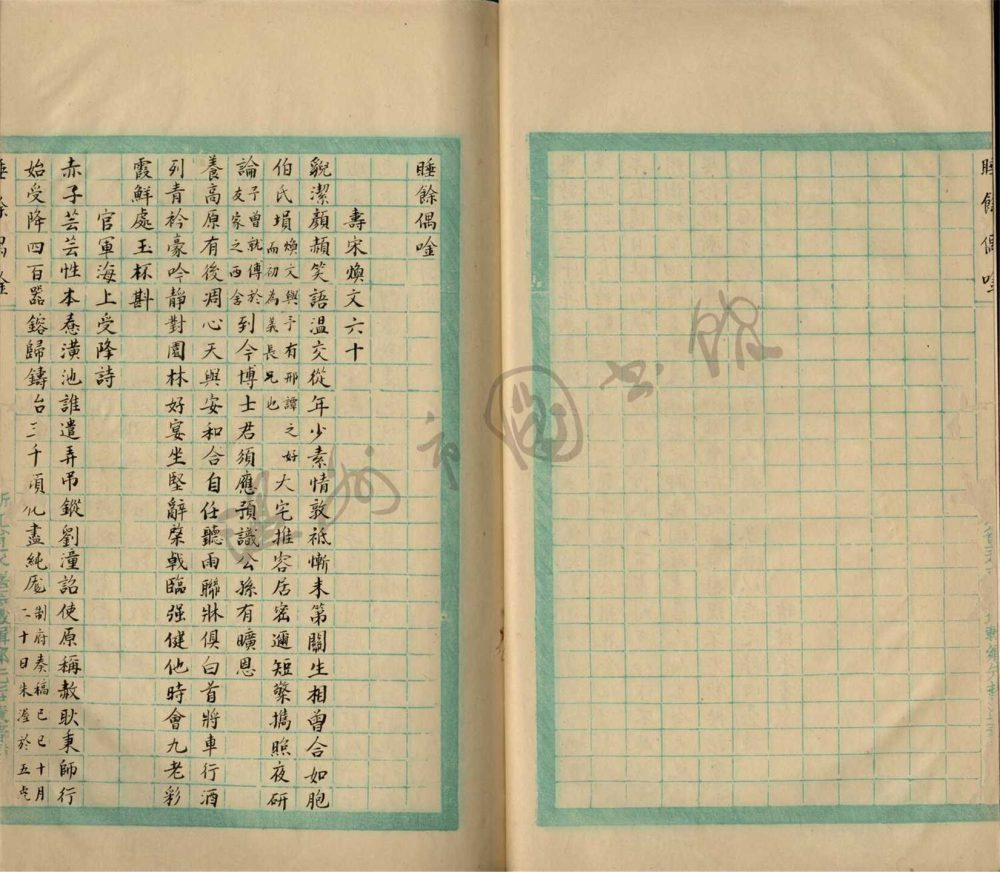 睡餘偶唫
睡餘偶唫
壽宋煥文六十
潔顏頳笑語溫交從年少素情敦祗慚未第關生相曾合如胞
伯氏塤煥文與予有邢譚之好
而幼為義長兄也
大宅推容居密邇短檠攜照夜研
論予曾就傅於
友家之西舍
到今博士君須應預識公孫有曠恩
養高原有後凋心天與安和合自任聽雨聯牀俱白首將車行酒
列青衿豪吟靜對園林好宴坐堅辭棨戟臨强健他時會九老彩
霞鮮處玉杯斟
官軍海上受降詩
赤子芸芸性本惷潢池誰遣弄吊鏦劉潼詔使原稱赦耿秉師行
始受降四百器鎔歸鑄台三千頃化盡純厖制府奏稿己巳十月
二十日朱濆於五虎
睡餘偶唫
溫州市圖书館